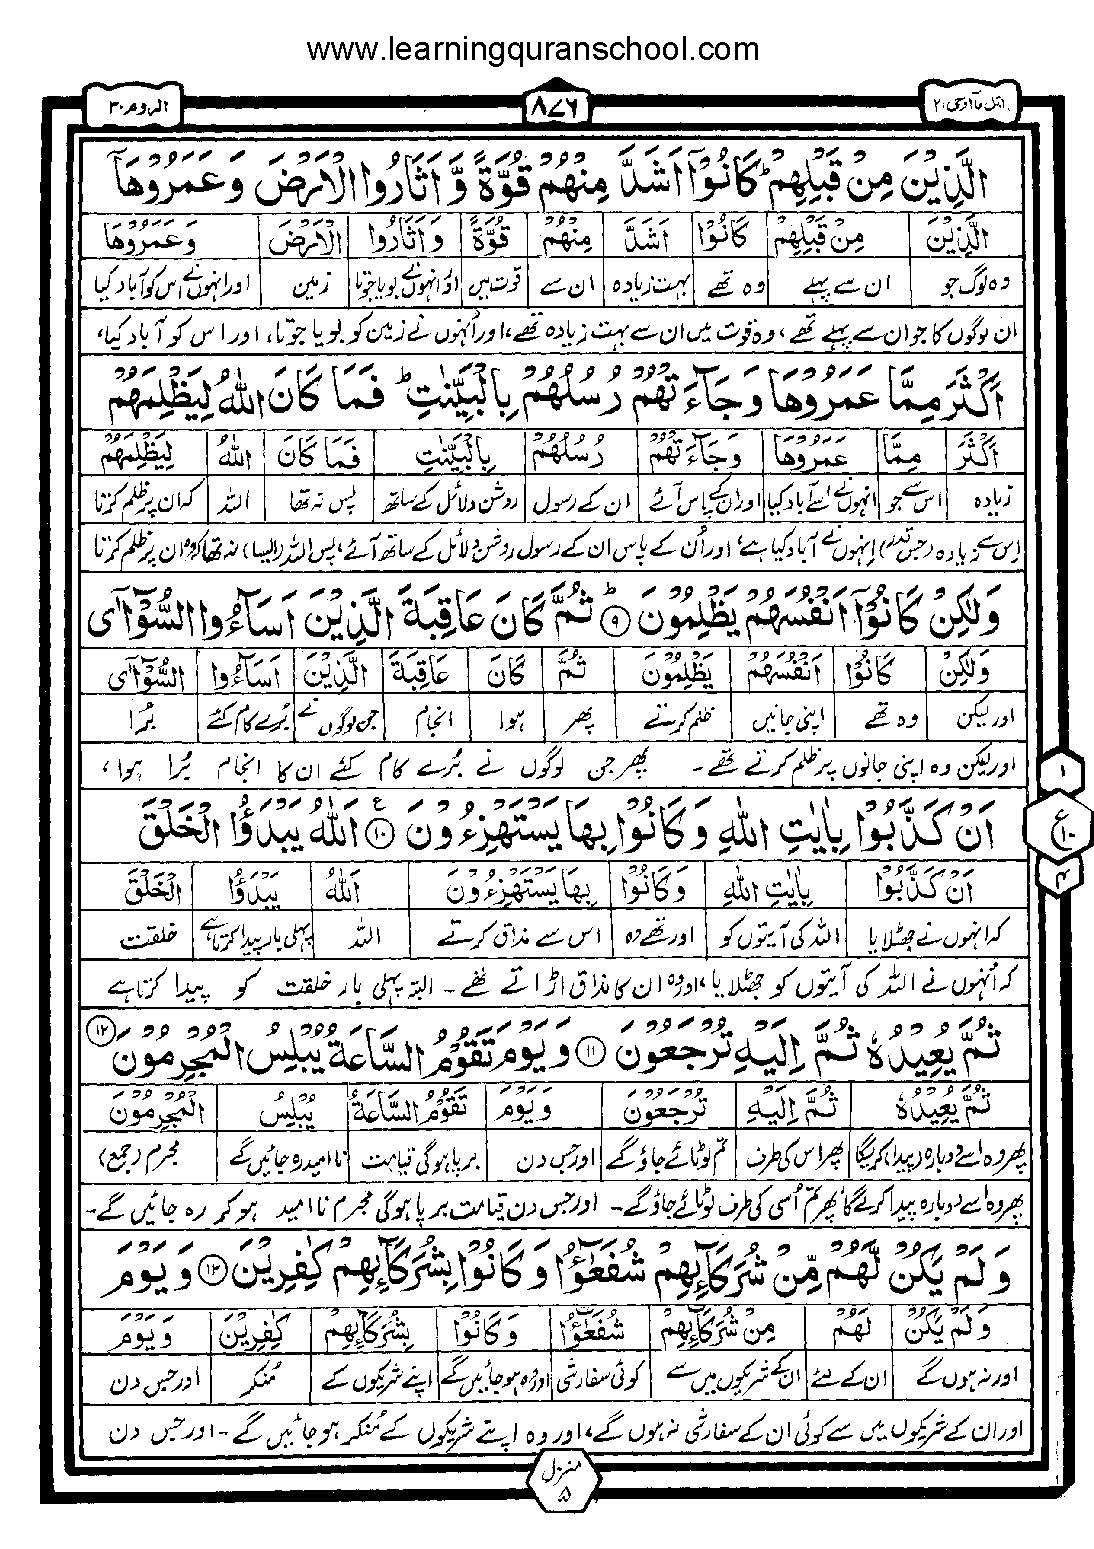 www.learningquranschool.com
اتل مآ اوحی ۲۱
۸۷۶
الروم ۳۰
الَّذِیْنَ مِنْ قَبْلِهِمْ ؕ كَانُوْۤا اَشَدَّ مِنْهُمْ قُوَّةً وَّ اَثَارُوا الْاَرْضَ وَ عَمَرُوْهَاۤ
الَّذِیْنَ مِنْ قَبْلِهِمْ كَانُوْۤا اَشَدَّ مِنْهُمْ قُوَّةً وَ اَثَارُوا الْاَرْضَ وَ عَمَرُوْهَا
وہ لوگ جو ان سے پہلے وہ تھے بہت زیادہ ان سے قوت میں اور انہوں نے بویا جوتا زمین اور انہوں نے اس کو آباد کیا
ان لوگوں کا جو ان سے پہلے تھے ، وہ قوت میں ان سے بہت زیادہ تھے، اور اُنہوں نے زمین کو بویا جوتا، اور اس کو آباد کیا،
اَكْثَرَ مِمَّا عَمَرُوْهَا وَ جَآءَتْهُمْ رُسُلُهُمْ بِالْبَیِّنٰتِ ؕ فَمَا كَانَ اللّٰهُ لِیَظْلِمَهُمْ
اَكْثَرَ مِمَّا عَمَرُوْهَا وَ جَآءَتْهُمْ رُسُلُهُمْ بِالْبَیِّنٰتِ فَمَا كَانَ اللّٰهُ لِیَظْلِمَهُمْ
زیادہ اس سے جو انہوں نے اسے آباد کیا اور ان کے پاس آئے ان کے رسول روشن دلائل کے ساتھ پس نہ تھا اللہ کہ ان پر ظلم کرتا
اِس سے زیادہ (جس قدر) اِنہوں نے آباد کیا ہے، اور اُن کے پاس ان کے رسول روشن دلائل کے ساتھ آئے، پس اللہ (ایسا) نہ تھا کہ وہ ان پر ظلم کرتا
وَ لٰكِنْ كَانُوْۤا اَنْفُسَهُمْ یَظْلِمُوْنَ ؕ ۹ ثُمَّ كَانَ عَاقِبَةَ الَّذِیْنَ اَسَآءُوا السُّوْٓاٰۤی
وَ لٰكِنْ كَانُوْۤا اَنْفُسَهُمْ یَظْلِمُوْنَ ثُمَّ كَانَ عَاقِبَةَ الَّذِیْنَ اَسَآءُوا السُّوْٓاٰۤی
اور لیکن وہ تھے اپنی جانیں ظلم کرتے پھر ہوا انجام جن لوگوں نے بُرے کام کئے بُرا
اور لیکن وہ اپنی جانوں پر ظلم کرتے تھے ۔ پھر جن لوگوں نے بُرے کام کئے ان کا انجام بُرا ہوا ،
اَنْ كَذَّبُوْا بِاٰیٰتِ اللّٰهِ وَ كَانُوْا بِهَا یَسْتَهْزِءُوْنَ ع ۱۰ اَللّٰهُ یَبْدَؤُا الْخَلْقَ
۱
ع ۱۰
۴
اَنْ كَذَّبُوْا بِاٰیٰتِ اللّٰهِ وَ كَانُوْا بِهَا یَسْتَهْزِءُوْنَ اَللّٰهُ یَبْدَؤُا الْخَلْقَ
کہ انہوں نے جھٹلایا اللہ کی آیتوں کو اور تھے وہ اس سے مذاق کرتے اللہ پہلی بار پیدا کرتا ہے خلقت
کہ اُنہوں نے اللہ کی آیتوں کو جھٹلایا، اور وہ ان کا مذاق اڑاتے تھے ۔ اللہ پہلی بار خلقت کو پیدا کرتا ہے
ثُمَّ یُعِیْدُهٗ ثُمَّ اِلَیْهِ تُرْجَعُوْنَ ۱۱ وَ یَوْمَ تَقُوْمُ السَّاعَةُ یُبْلِسُ الْمُجْرِمُوْنَ ۱۲
ثُمَّ یُعِیْدُهٗ ثُمَّ اِلَیْهِ تُرْجَعُوْنَ وَ یَوْمَ تَقُوْمُ السَّاعَةُ یُبْلِسُ الْمُجْرِمُوْنَ
پھر وہ اسے دوبارہ پیدا کریگا پھر اس کی طرف تم لوٹائے جاؤ گے اور جس دن برپا ہوگی قیامت نا امید رہ جائیں گے مجرم (جمع)
پھر وہ اسے دوبارہ پیدا کرے گا پھر تم اُسی کی طرف لوٹائے جاؤ گے ۔ اور جس دن قیامت برپا ہوگی مجرم نا امید ہو کر رہ جائیں گے ۔
وَ لَمْ یَكُنْ لَّهُمْ مِّنْ شُرَكَآىِٕهِمْ شُفَعٰٓؤُا وَ كَانُوْا بِشُرَكَآىِٕهِمْ كٰفِرِیْنَ ۱۳ وَ یَوْمَ
وَ لَمْ یَكُنْ لَهُمْ مِنْ شُرَكَآىِٕهِمْ شُفَعٰٓؤُا وَ كَانُوْا بِشُرَكَآىِٕهِمْ كٰفِرِیْنَ وَ یَوْمَ
اور نہ ہوں گے ان کے لئے ان کے شریکوں میں سے کوئی سفارشی اور وہ ہو جائیں گے اپنے شریکوں کے مُنکر اور جس دن
اور ان کے شریکوں میں سے کوئی ان کے سفارشی نہ ہوں گے، اور وہ اپنے شریکوں کے مُنکر ہو جائیں گے ۔ اور جس دن
منزل
۵